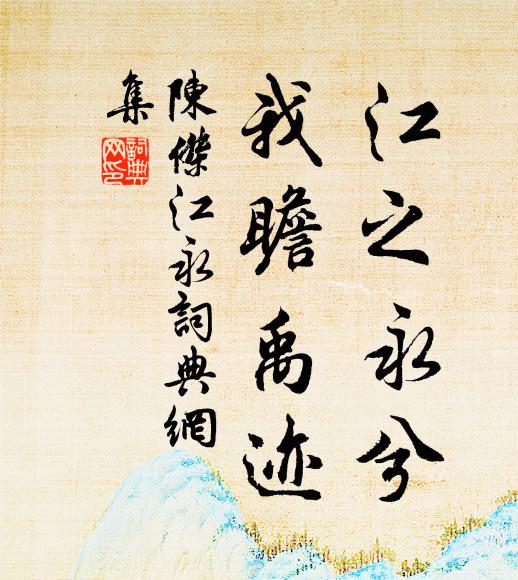 江之永兮
我瞻禹迹
陳傑江永詞典網
集
詞典網印